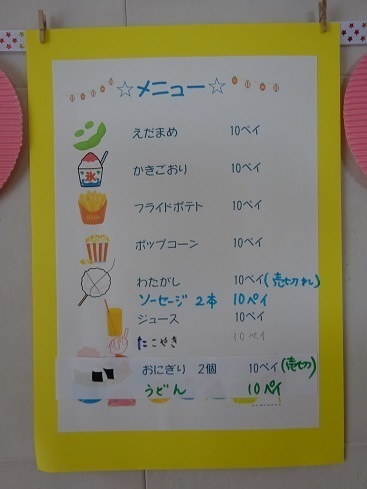 ☆メニュー☆
えだまめ 10ペイ
かきごおり 10ペイ
氷
フライドポテト 10ペイ
ポップコーン 10ペイ
わたがし 10ペイ(売切れ)
ソーセージ 2本 10ペイ
ジュース 10ペイ
たこやき 10ペイ
おにぎり 2個 10ペイ(売切)
うどん 10ペイ